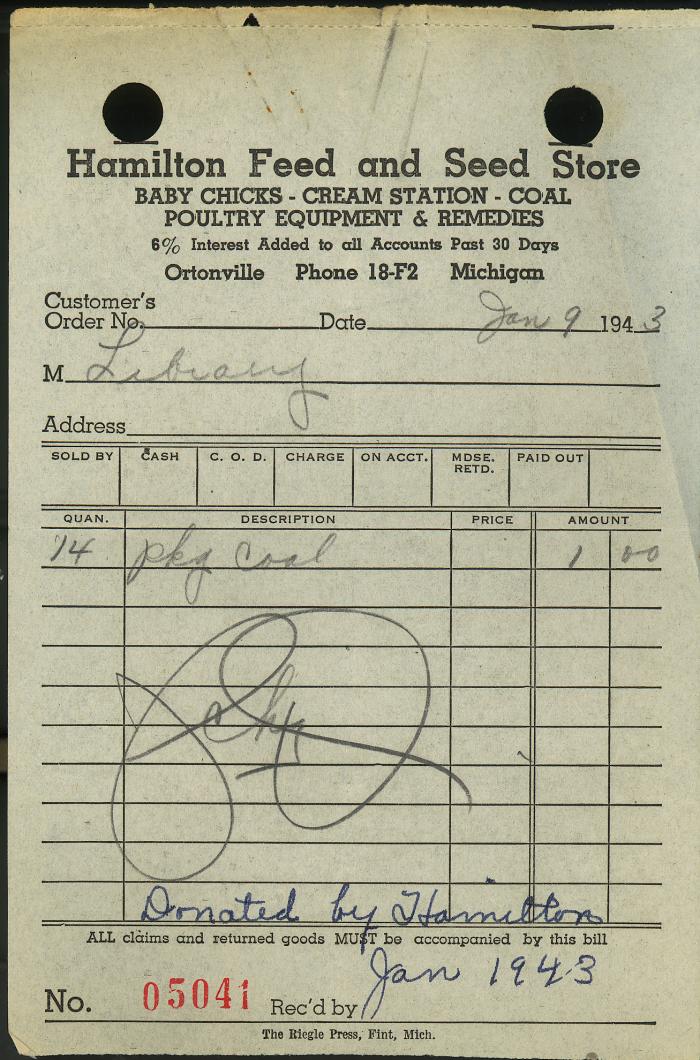 Hamilton Feed and Seed Store
BABY CHICKS - CREAM STATION - COAL
POULTRY EQUIPMENT & REMEDIES
6% Interest Added to all Accounts Past 30 Days
Ortonville Phone 18-F2 Michigan
Customer's
Order No. Date Jan 9 1943
M Library
Address
SOLD BY CASH C. O. D. CHARGE ON ACCT. MDSE. RETD. PAID OUT
QUAN. DESCRIPTION PRICE AMOUNT
14 pkg coal 1 00
chg
Donated by Hamilton
ALL claims and returned goods MUST be accompanied by this bill
Jan 1943
No. 05041 Rec'd by
The Riegle Press, Fint, Mich.